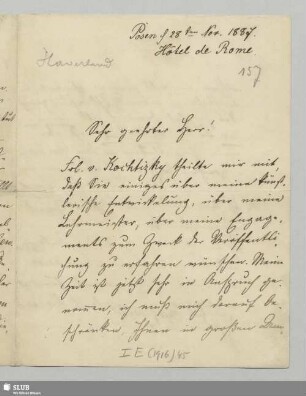 Posen d. 28ten Nov. 1887.
Hôtel de Rome.
Haverland
157
Sehr geehrter Herr!
Frl. v. Kochtizky theilte mir mit
daß Sie einiges über meine künst-
lerische Entwickelung, über meine
Lehrmeister, über meine Engage-
ments zum Zweck der Veröffentli-
chung zu erfahren wünschen. Meine
Zeit ist jetzt sehr in Anspruch ge-
nommen, ich muß mich darauf be-
schränken, Ihnen in großen
I E (1916) 45
SLUB